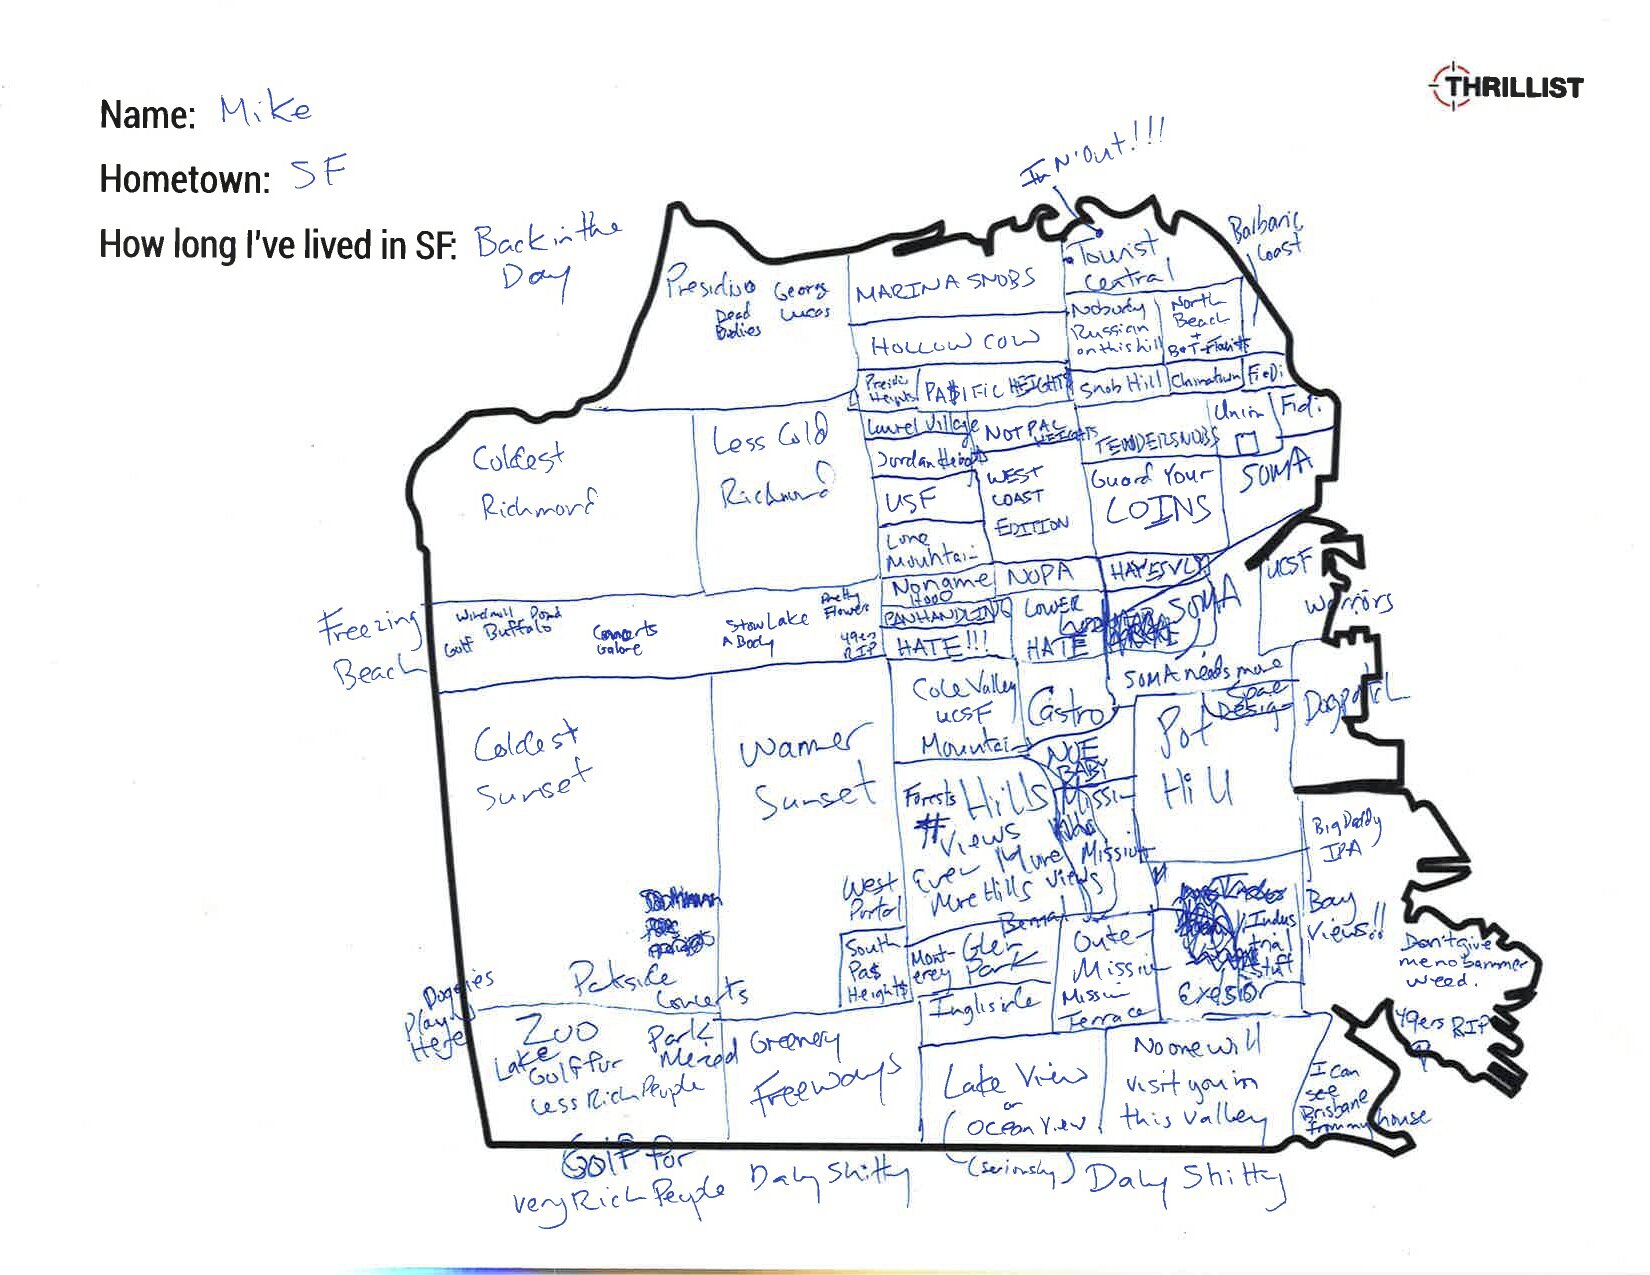 THRILLIST
Name: Mike
Hometown: SF
How long I've lived in SF: Back in the
Day
IN N' Out!!!
Balbaric
Coast
Tourist
Central
Presidio
Dead
Bodies
George
Lucas
MARINA SNOBS
Nobody
Russian
on this hill
North
Beach
+
B+T
HOLLOW COW
Presidi
Heights
PA$IFIC HEIGHTS
Snob Hill
Chinatown
FiDi
Laurel Village
NOT PAC
HEIGHTS
TENDERSNOBS
Union
Fidi
Coldest
Richmond
Less Cold
Richmond
Jordan Heights
USF
WEST
COAST
EDITION
Guard Your
LOINS
SOMA
Lone
Mountain
Noname
Hood
NOPA
HAYES VLY
UCSF
Warriors
Freezing
Beach
Windmill
Pond
Golf
Buffalo
Concerts
Galore
Stow Lake
A Body
Pretty
Flowers
49ers
RIP
PANHANDLING
HATE!!!
LOWER
HATE
SOMA
SOMA needs more
Space
Design
Cole Valley
UCSF
Mountain
Castro
Dogpatch
Coldest
Sunset
Warmer
Sunset
NOE
BABY
Pot
Hill
Forests
Hills
Views
Even More
More Hills Views
Mission
Mission
Big Daddy
IPA
West
Portal
Bernal
Indus
trial
Stuff
Bay
Views!!
South
Pa$
Height$
Mont-
erey
Glen
Park
Outer
Mission
Mission
Terrace
Exesior
Don't give
me no bammer
weed.
49ers RIP
Parkside
Concerts
Doggies
Play
Here
Zoo
Lake
Golf for
Less Rich People
Park
Merced
Greenery
Freeways
Ingliside
Lake View
or
Ocean View
(seriously)
No one will
visit you in
this valley
I can
see
Brisbane
from my house
Golf for
very Rich People
Daly Shitty
Daly Shitty